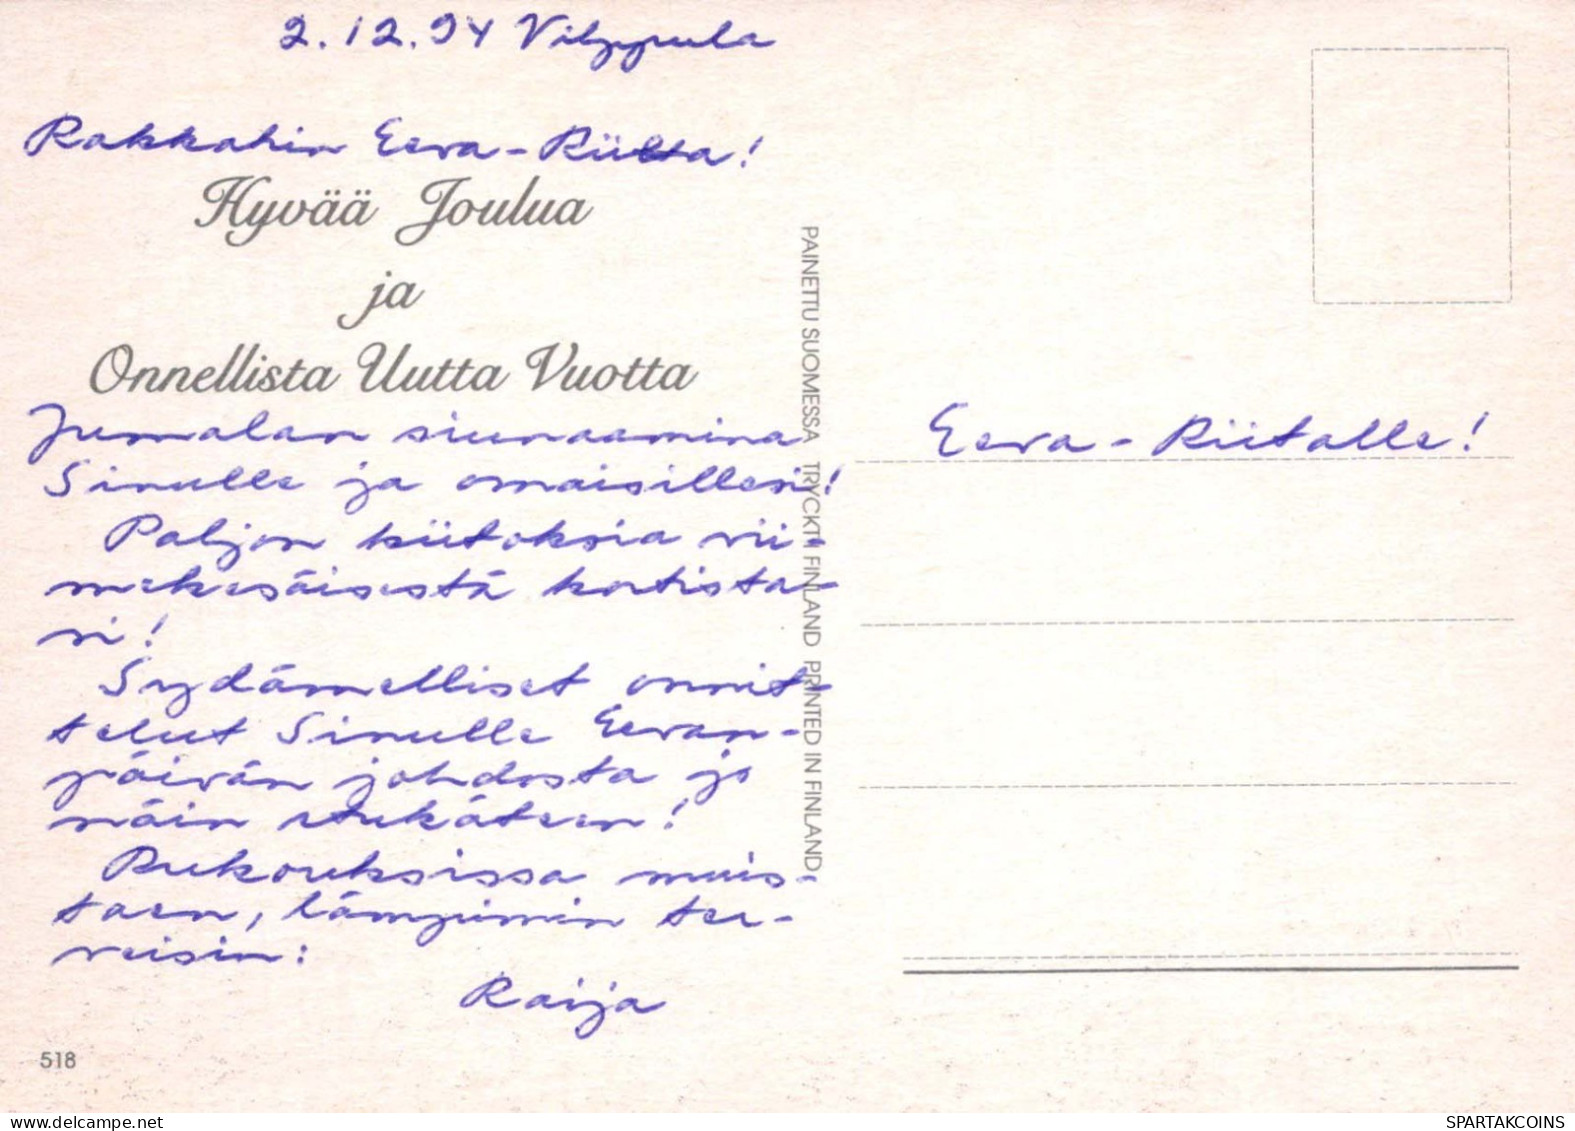 2.12.94 Vilppula
Rakkahin Eeva-Riitta!
Hyvää Joulua
ja
Onnellista Uutta Vuotta
Jumalan siunaamina
Sinulle ja omaisillesi!
Paljon kiitoksia vii-
mekesäisestä kortista-
si!
Sydämelliset onnit-
telut Sinulle Eevan-
päivän johdosta jo
näin etukäteen!
Rukouksissa muis-
taen, lämpimin ter-
veisin:
Raija
518
PAINETTU SUOMESSA TRYCKT I FINLAND PRINTED IN FINLAND
Eeva-Riitalle!
SPARTAKCOINS